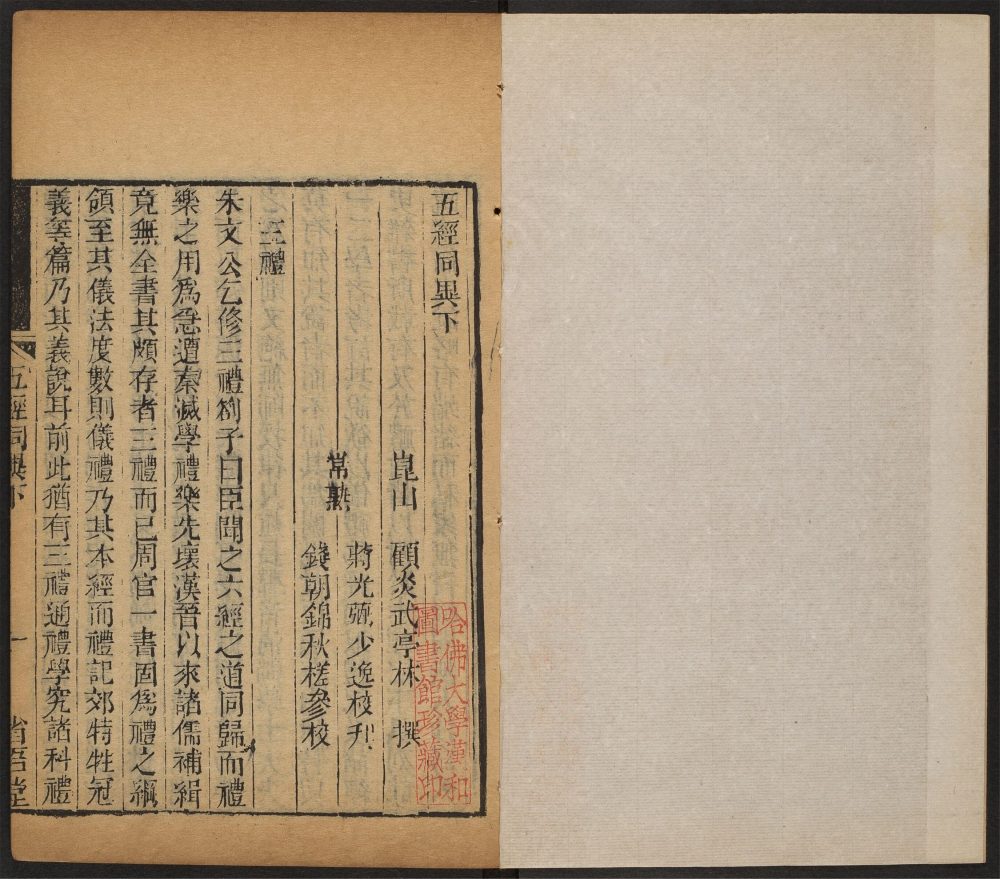 五經同異下
崑山 顧炎武亭林 撰
蔣光弼少逸校刋
常熟
錢朝錦秋槎參校
三禮
朱文公乞修三禮劄子曰臣聞之六經之道同歸而禮
樂之用爲急遭秦滅學禮樂先壞漢晉以來諸儒補緝
竟無全書其頗存者三禮而已周官一書固爲禮之綱
領至其儀法度數則儀禮乃其本經而禮記郊特牲冠
義等篇乃其義說耳前此猶有三禮通禮學究諸科禮
五經同異下
一
省吾堂
哈佛大學漢和
圖書館珍藏印